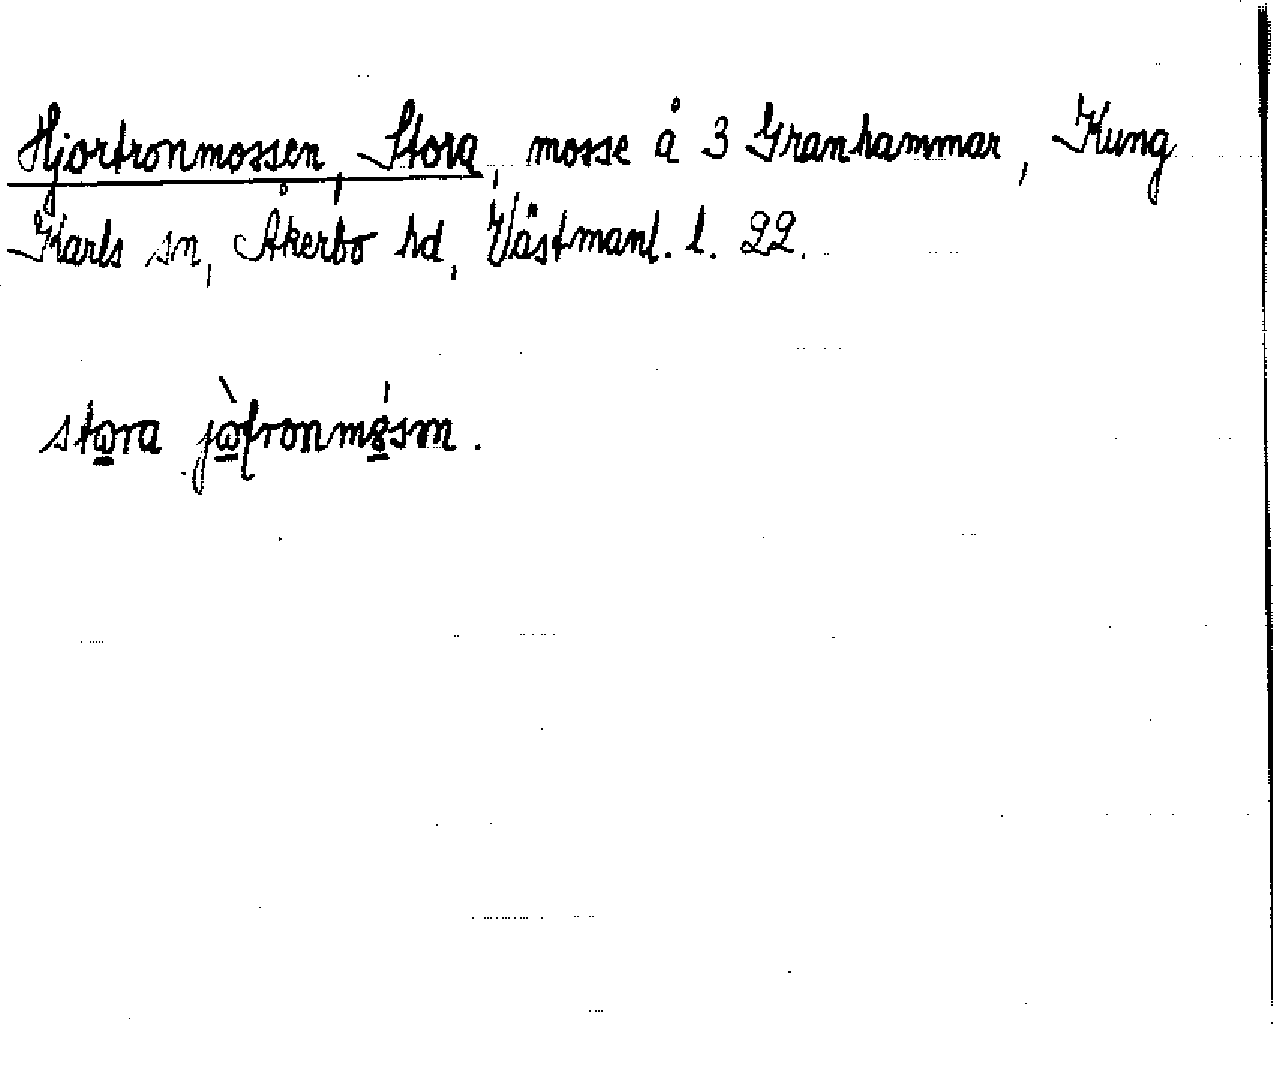 Hjortronmossen, Stora, mosse å 3 Granhammar, Kung
Karls sn, Åkerbo hd, Västmanl. l. 22.
stora jòfronmósm.